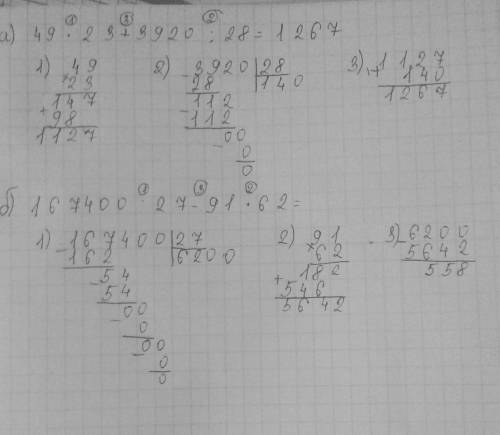 а) 49 · 23 + 3920 : 28 = 1267
① ③ ②
1) 49
× 23
147
+ 98
1127
2) 3920 | 28
- 28 | 140
112
- 112
00
- 0
0
3) 1127
+ 140
1267
б) 167400 : 27 - 91 · 62 =
① ③ ②
1) 167400 | 27
- 162 | 6200
54
- 54
00
- 0
00
- 0
0
2) 91
× 62
182
+ 546
5642
3) 6200
- 5642
558